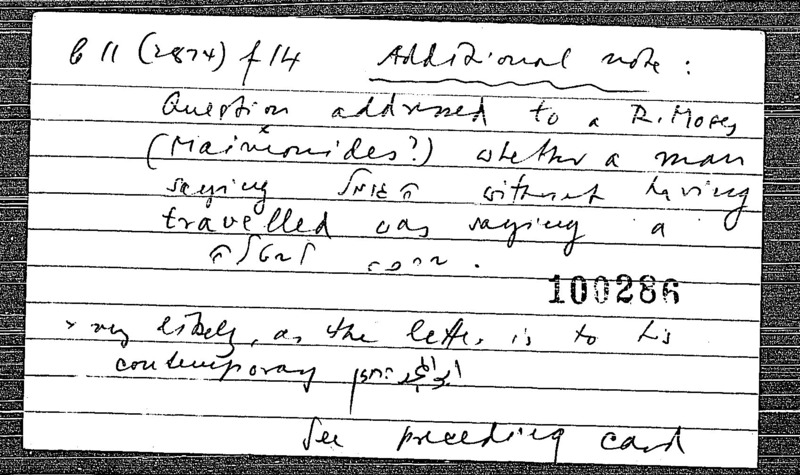 b 11 (2874) f 14 Additional note:
Question addressed to a R. Moses
(Maimonides?) whether a man
saying הגומל without having
travelled was saying a
ברכה לבטלה.
100286
x very likely, as the letter is to his
contemporary
See preceding card